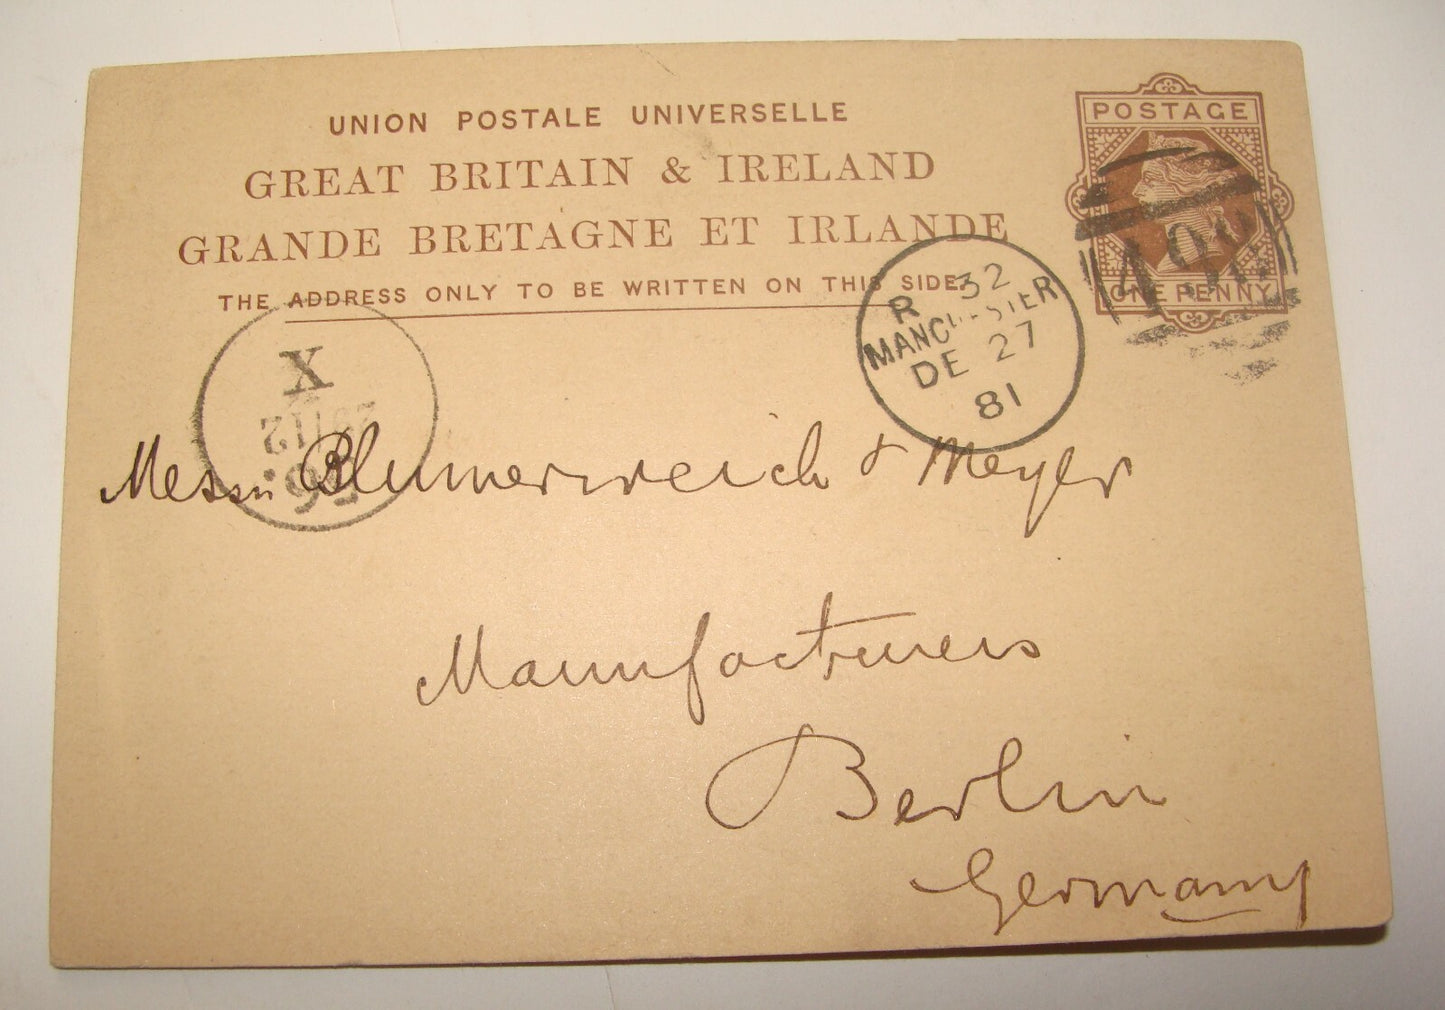 UNION POSTALE UNIVERSELLE
GREAT BRITAIN & IRELAND
GRANDE BRETAGNE ET IRLANDE
THE ADDRESS ONLY TO BE WRITTEN ON THIS SIDE.
POSTAGE
498
ONE PENNY
R 32
MANCHESTER
DE 27
81
X
Messrs Blumenreich & Meyer
Manufacturers
Berlin
Germany